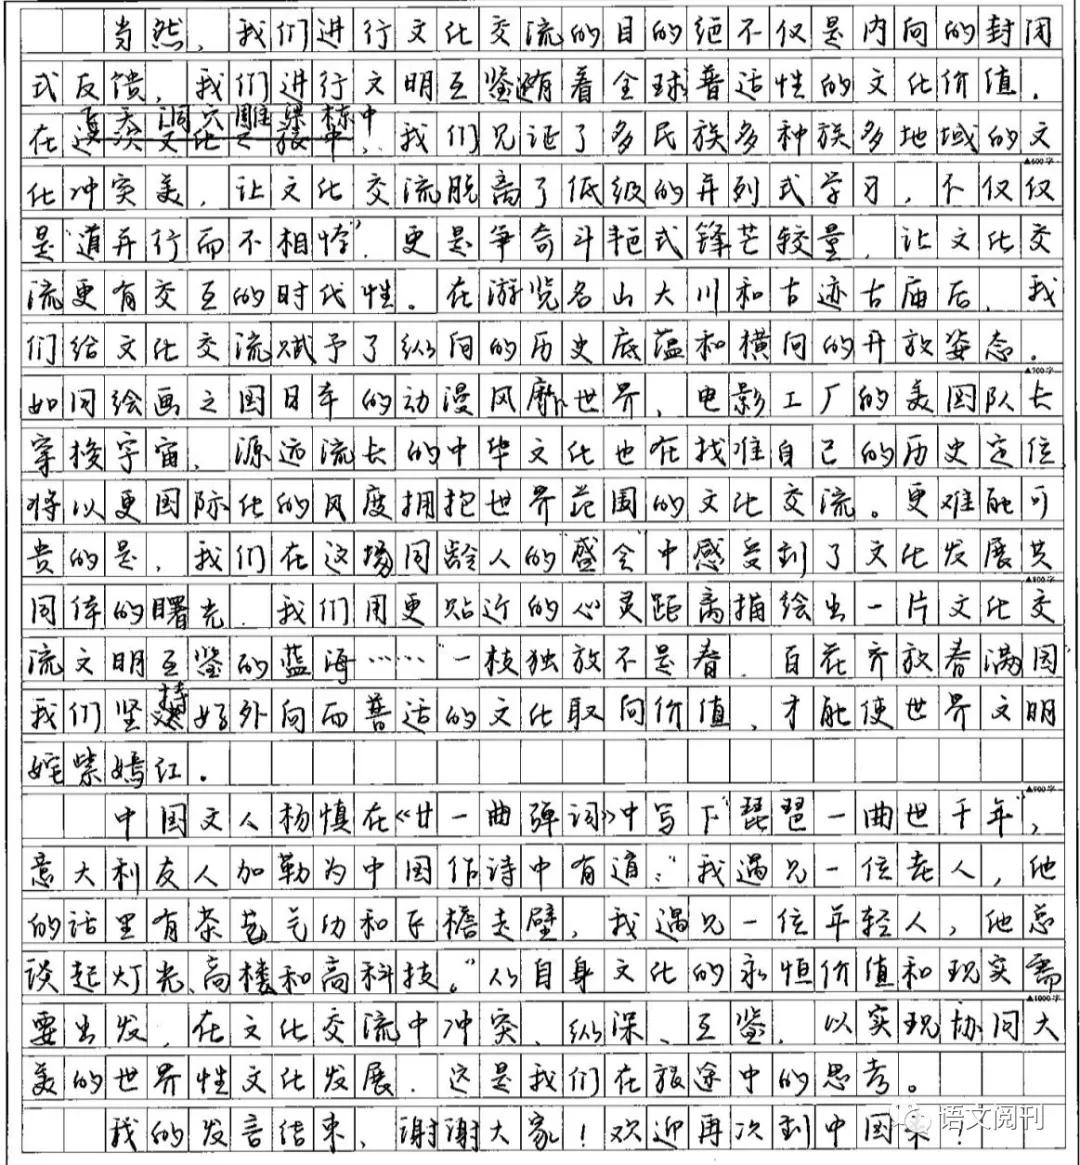 当然，我们进行文化交流的目的绝不仅是内向的封闭
式反馈，我们进行文明互鉴有着全球普适性的文化价值．
飞天洞穴雕梁栋中
在这次文化之旅中，我们见证了多民族多种族多地域的文
▲600字
化冲突美，让文化交流脱离了低级的并列式学习，不仅仅
是“道并行而不相悖”，更是争奇斗艳式锋芒较量，让文化交
流更有交互的时代性。在游览名山大川和古迹古庙后，我
们给文化交流赋予了纵向的历史底蕴和横向的开放姿态．
▲700字
如同绘画之国日本的动漫风靡世界，电影工厂的美国队长
穿梭宇宙，源远流长的中华文化也在找准自己的历史定位，
将以更国际化的风度拥抱世界范围的文化交流。更难能可
贵的是，我们在这场同龄人的“盛会”中感受到了文化发展共
▲800字
同体的曙光，我们用更贴近的心灵距离描绘出一片文化交
流文明互鉴的蓝海……“一枝独放不是春，百花齐放春满园”
我们坚持好外向而普适的文化取向价值，才能使世界文明
姹紫嫣红．
▲900字
中国文人杨慎在《廿一曲弹词》中写下“琵琶一曲世千年”，
意大利友人加勒为中国作诗中有道：“我遇见一位老人，他
的话里有茶艺气功和飞檐走壁，我遇见一位年轻人，他总
谈起灯光、高楼和高科技。”从自身文化的永恒价值和现实需
▲1000字
要出发，在文化交流中冲突、纵深、互鉴，以实现协同大
美的世界性文化发展．这是我们在旅途中的思考。
我的发言结束，谢谢大家！欢迎再次到中国来！
语文阅刊